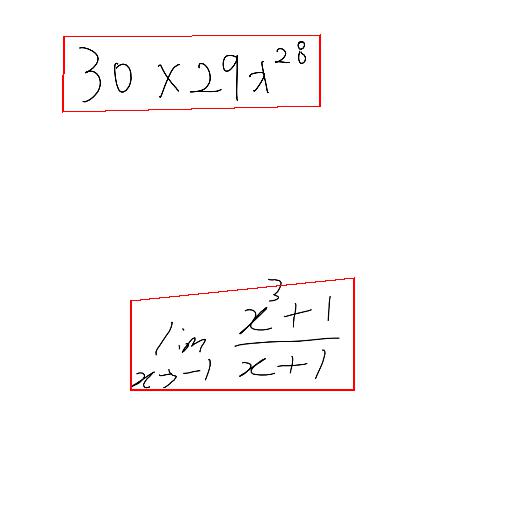 30 × 29x^{28}
\lim_{x \to -1} \frac{x^3+1}{x+1}